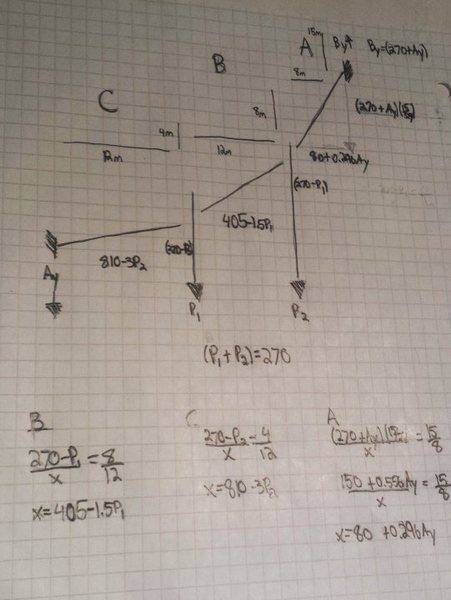 15m
A
By
By=(270+Ay)
B
8m
C
8m
(270+Ay)
4m
12m
12m
80+0.296Ay
(270-P₁)
405-1.5P₁
810-3P₂
Ay
P₁
P₂
(P₁+P₂)=270
B
270-P₁ = 8
x 12
x=405-1.5P₁
C
270-P₂ = 4
x 12
x=810-3P₂
A
(270+Ay) = 15
x 8
150+0.556Ay = 15
x 8
x=80 +0.296Ay